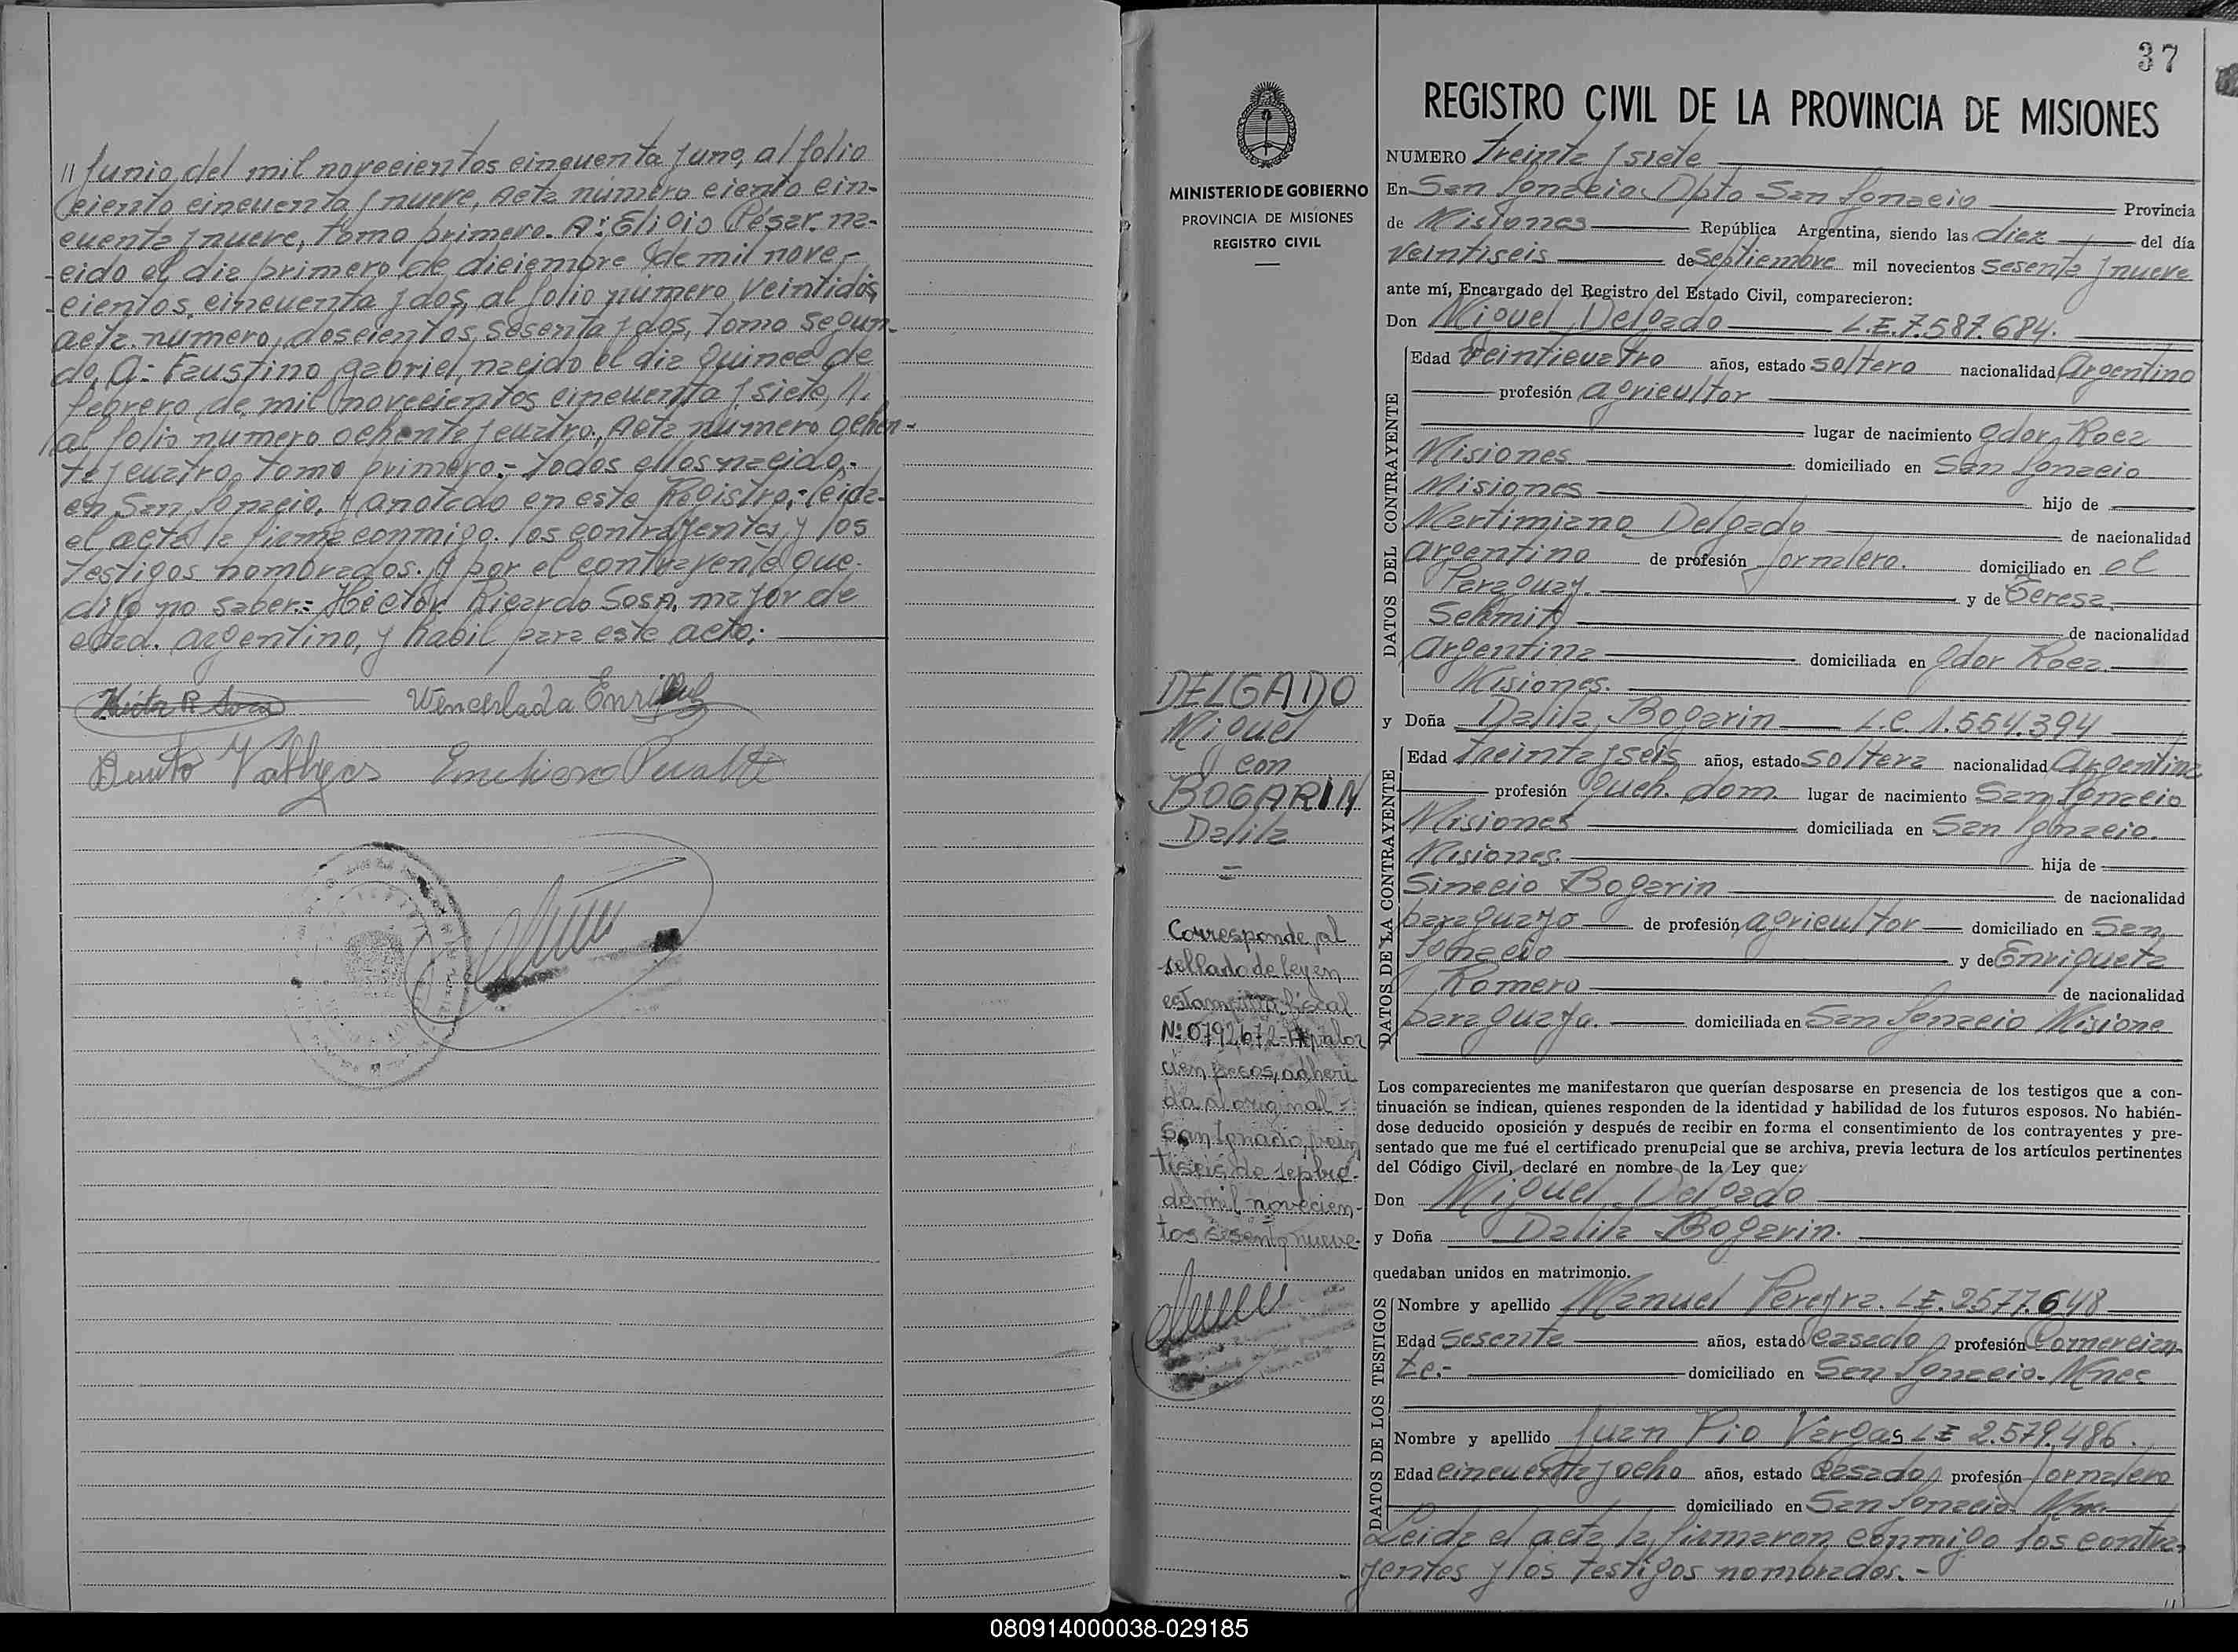 " Junio, del mil novecientos cincuenta y uno, al folio
ciento cincuenta y nueve, Acta número ciento cin-
cuenta y nueve, tomo primero. A: Eligio César, na-
cido el dia primero de diciembre de mil nove-
cientos, cincuenta y dos, al folio número, veintidós,
acta. numero, doscientos, sesenta y dos, tomo segun-
do, A: Faustino gabriel, nacido el dia quince de
febrero de, mil novecientos cincuenta y siete,
al folio numero ochenta y cuatro, Acta numero ochen-
ta y cuatro, tomo primero.- todos ellos nacido,-
en San Ignacio, y anotado en este Registro,- leida
el acta la firma conmigo. los contrayentes y los
testigos nombrados. y por el contrayente que
dijo no saber.- Héctor Ricardo Sosa, mayor de
edad. argentino, y habil para este acto;
Héctor R Sosa
Wenceslada
Benito Vallejos
37
REGISTRO CIVIL DE LA PROVINCIA DE MISIONES
MINISTERIO DE GOBIERNO
PROVINCIA DE MISIONES
REGISTRO CIVIL
DELGADO
Miguel
con
BOGARIN
Dalila
=
Corresponde al
sellado de ley en
estampilla fiscal
Nº 0792672- valor
cien pesos, adheri
da al original =
San Ignacio, vein
tiseis de sepbre.
de mil novecien-
tos sesenta y nueve.
NUMERO treinta y siete
En San Ignacio Dpto San Ignacio Provincia
de Misiones República Argentina, siendo las diez del día
veintiseis de Septiembre mil novecientos sesenta y nueve
ante mí, Encargado del Registro del Estado Civil, comparecieron:
Don Miguel Delgado L.E. 7.587.684.
DATOS DEL CONTRAYENTE
Edad veinticuatro años, estado soltero nacionalidad Argentino
profesión agricultor
lugar de nacimiento Gdor. Roca
Misiones domiciliado en San Ignacio
Misiones hijo de
Martimiano Delgado de nacionalidad
argentino de profesión Jornalero. domiciliado en el
Paraguay. y de Teresa
Schmit de nacionalidad
Argentina domiciliada en Gdor Roca
Misiones.
y Doña Dalila Bogarin L.C. 1.554.394
DATOS DE LA CONTRAYENTE
Edad treinta y seis años, estado soltera nacionalidad Argentina
profesión Queh. dom. lugar de nacimiento San Ignacio
Misiones domiciliada en San Ignacio.
Misiones. hija de
Simecio Bogarin de nacionalidad
paraguayo de profesión agricultor domiciliado en San
Ignacio y de Enriqueta
Romero de nacionalidad
paraguaya. domiciliada en San Ignacio Misione
Los comparecientes me manifestaron que querían desposarse en presencia de los testigos que a con-
tinuación se indican, quienes responden de la identidad y habilidad de los futuros esposos. No habién-
dose deducido oposición y después de recibir en forma el consentimiento de los contrayentes y pre-
sentado que me fué el certificado prenupcial que se archiva, previa lectura de los artículos pertinentes
del Código Civil, declaré en nombre de la Ley que:
Don Miguel Delgado
y Doña Dalila Bogarin.
quedaban unidos en matrimonio.
DATOS DE LOS TESTIGOS
Nombre y apellido Manuel Pereyra. LE. 2577.648
Edad sesenta años, estado casado profesión Comercian-
te.- domiciliado en San Ignacio. Mnes
Nombre y apellido Juan Pio Vargas LE 2.579.486.
Edad cincuenta y ocho años, estado casado profesión Jornalero
domiciliado en San Ignacio. Mne.
Leida el acta la firmaron conmigo los contra-
yentes y los testigos nombrados.-
080914000038-029185